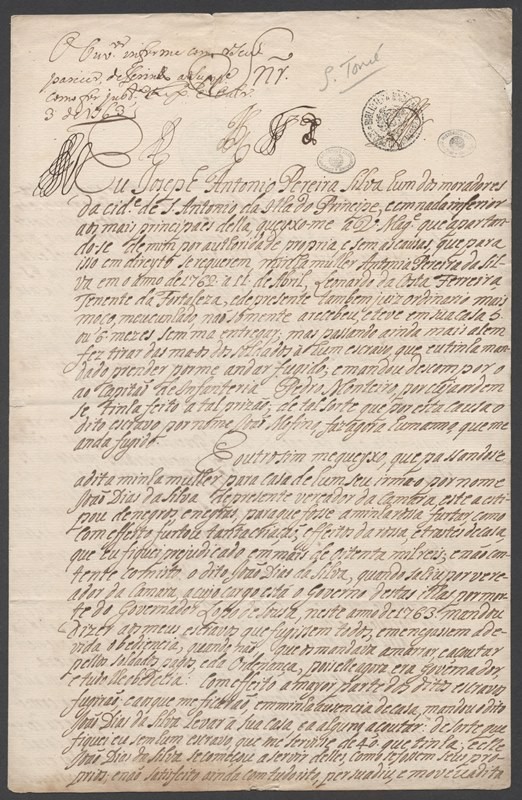 O Ouv.or informe com o seu
parecer,
3 de 1763
S. Tomé
Snr.
Eu Joseph Antonio Pereira Silva hum dos moradores
da cid.e de S. Antonio da Ilha do Principe, e em nada inferior
aos mais principaes della, queyxo-me a V. Mag.e que apartan-
do-se de mim por authoridade propria e sem as cauzas, que para
isso em direyto se requerem, minha mulher Antonia Pereira da Sil-
va em o anno de 1762 a 11 de Abril, Leonardo da Costa Ferreira
Tenente da Fortaleza, e de presente tambem juiz ordinario mais
moço, meu cunhado, não somente a recebeu, e teve em sua caza 5
ou 6 mezes sem ma entregar, mas passando ainda mais alem
fez tirar das mãos dos soldados a hum escravo, que eu tinha man-
dado prender por me andar fugido; e mandou descompor o
ao Capitão de Infanteria Pedro Monteiro, por cuja ordem
se tinha feito a tal prizão; de tal sorte que por esta cauza o
dito escravo por nome João Mofino, faz agora hum anno, que me
anda fugido.
E outro sim me queyxo, que passandose
a dita minha mulher para casa de hum seu irmão por nome
João Dias da Silva de presente vereador da Camara, este a
pou de negros, e negras, para que fosse a minha furtar, como
com effeito furtou tantas effeitos da rossa, e trastes de casa,
que eu fiquei prejudicado em mais de oitenta mil reis; e não con-
tente com isto o dito João Dias da Silva, quando sahiu por vere-
ador da Camara, a cujo cargo está o Governo destas Ilhas por mor-
te do Governador Lopo de Sousa, neste anno de 1763 mandou
dizer aos meus escravos que fugissem todos, e me negassem a de-
vida obediencia, quando não que os mandava amarrar, e açoutar
pellos Soldados pagos, e da Ordenança, pois elle agora era Governador,
e tudo lhe obedecia: Com effeito a mayor parte dos ditos escravos
fugirão; e a os que me ficarão, em minha auzencia de casa, mandou o dito
João Dias da Silva levar a sua casa, e a alguns açoutar: de sorte que
fiquei eu sem hum escravo, que me servisse de 40 que tinha; e elle
João Dias da Silva se começou a servir delles, como se fossem seus pro-
prios; e não satisfeito ainda com tudo isto, persuadiu e moveu a dita